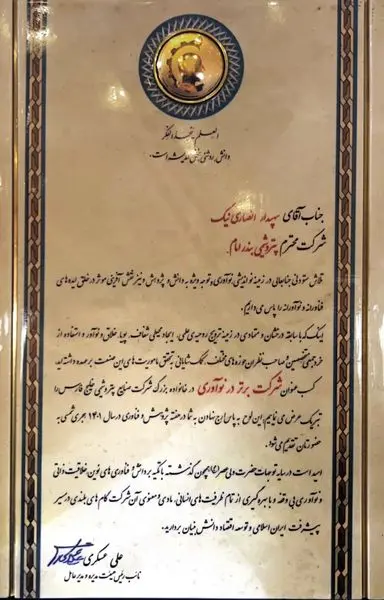 العلم ینجد الفکر
دانش، روشنی بخش اندیشه است.
جناب آقای سپهدار انصاری نیک
شرکت محترم پتروشیمی بندر امام
تلاش ستودنی جنابعالی در زمینه نواندیشی، نوآوری و توجه ویژه به دانش و پژوهش و نیز نقش آفرینی موثر در خلق ایده‌های
فناورانه و نوآورانه را پاس می‌داریم.
اینک که با سابقه درخشان و متمادی در زمینه ترویج روحیه علمی، ایجاد محیطی شفاف، پویا، خلاق و نوآور و استفاده از
خرد جمعی متخصصین و صاحب نظران حوزه‌های مختلف، کمک شایانی به تحقق ماموریت‌های این صنعت بر عهده داشته‌اید،
کسب عنوان شرکت برتر در نوآوری در خانواده بزرگ شرکت صنایع پتروشیمی خلیج فارس را
تبریک عرض می نماییم. این لوح به پاس ارج نهادن به شما در هفته پژوهش و فناوری در سال ۱۴۰۱ هجری شمسی به
حضورتان تقدیم می‌شود.
امید است در سایه توجهات حضرت ولی عصر (عج) همچون گذشته با تکیه بر دانش و فناوری‌های نوین، خلاقیت ذاتی
و نوآوری بی وقفه و با بهره گیری از تمام ظرفیت‌های انسانی، مادی و معنوی آن شرکت گام‌های بلندی در مسیر
پیشرفت ایران اسلامی و توسعه اقتصاد دانش بنیان بردارید.
علی عسکری
نائب رئیس هیئت مدیره و مدیرعامل